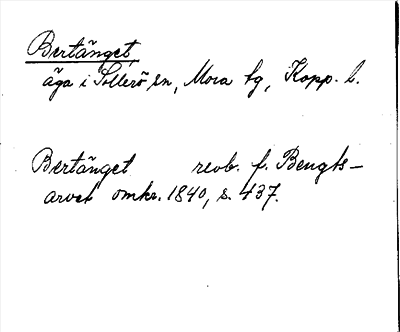 Bertänget
äga i Sollerö sn, Mora tg, Kopp. l.
Bertänget reob. f. Bengts-
arvet omkr. 1840, s. 437.